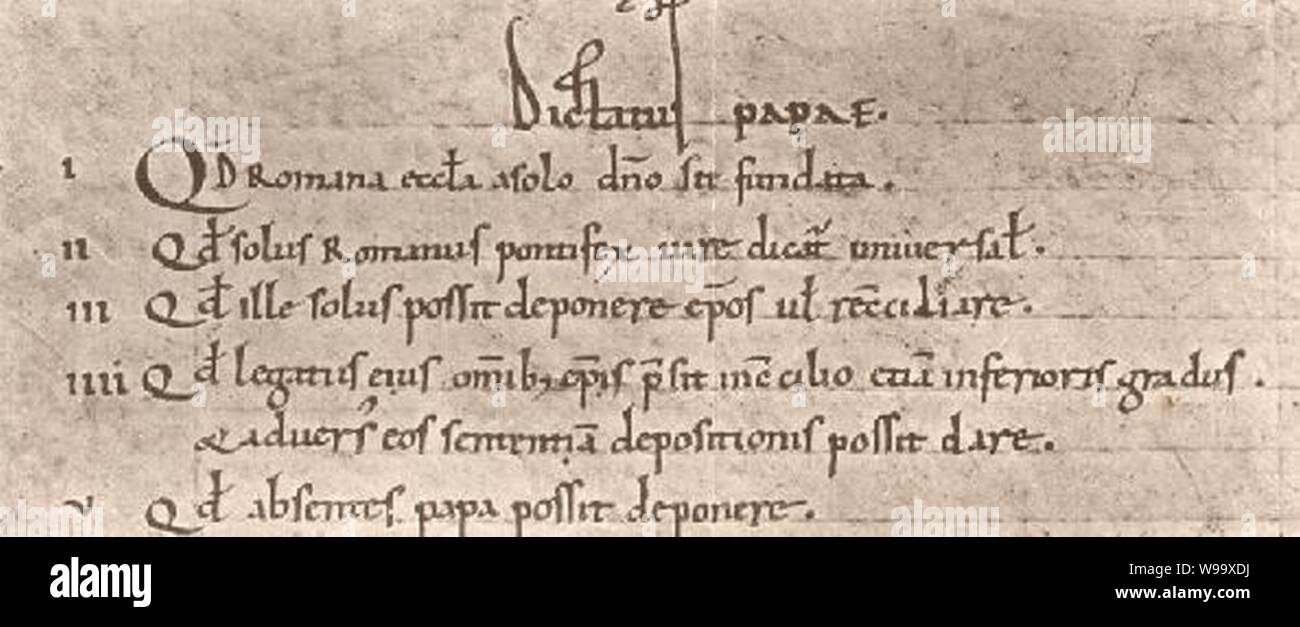 Dictatus PAPAE.
I QD̄ Romana eccła asolo dn̄o sit fundata.
II Qđ solus Romanus pontifex iure dicat̄ universał.
III Qđ ille solus possit deponere ep̄os uł rec̄ciliare.
IIII Qđ legatus eius om̄ib; ep̄is p̄sit inc̄cilio etiā inferioris gradus.
& advers' eos sententiā depositionis possit dare.
V Qđ absentes papa possit deponere.
alamy
W99XDJ
www.alamy.com